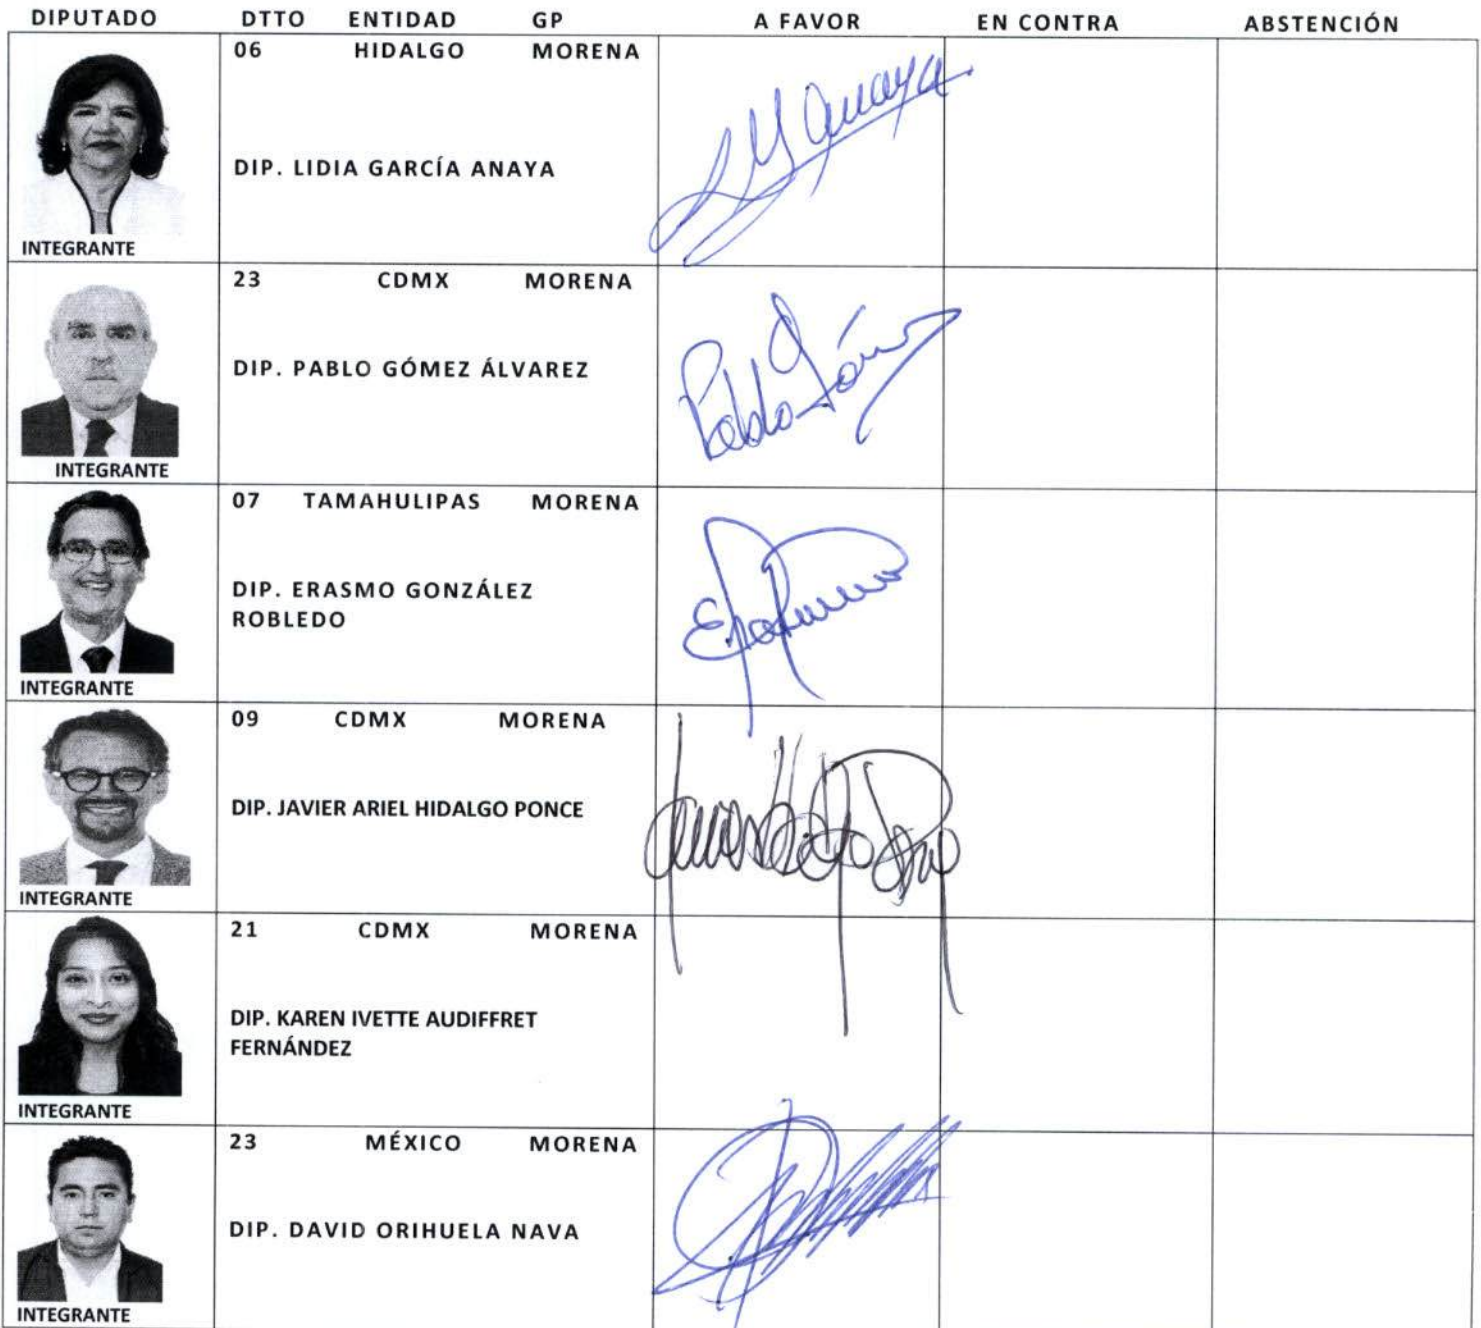 DIPUTADO DTTO ENTIDAD GP A FAVOR EN CONTRA ABSTENCIÓN
06 HIDALGO MORENA
DIP. LIDIA GARCÍA ANAYA
Anaya
INTEGRANTE
23 CDMX MORENA
DIP. PABLO GÓMEZ ÁLVAREZ
Pablo Góm
INTEGRANTE
07 TAMAHULIPAS MORENA
DIP. ERASMO GONZÁLEZ
ROBLEDO
INTEGRANTE
09 CDMX MORENA
DIP. JAVIER ARIEL HIDALGO PONCE
INTEGRANTE
21 CDMX MORENA
DIP. KAREN IVETTE AUDIFFRET
FERNÁNDEZ
INTEGRANTE
23 MÉXICO MORENA
DIP. DAVID ORIHUELA NAVA
INTEGRANTE